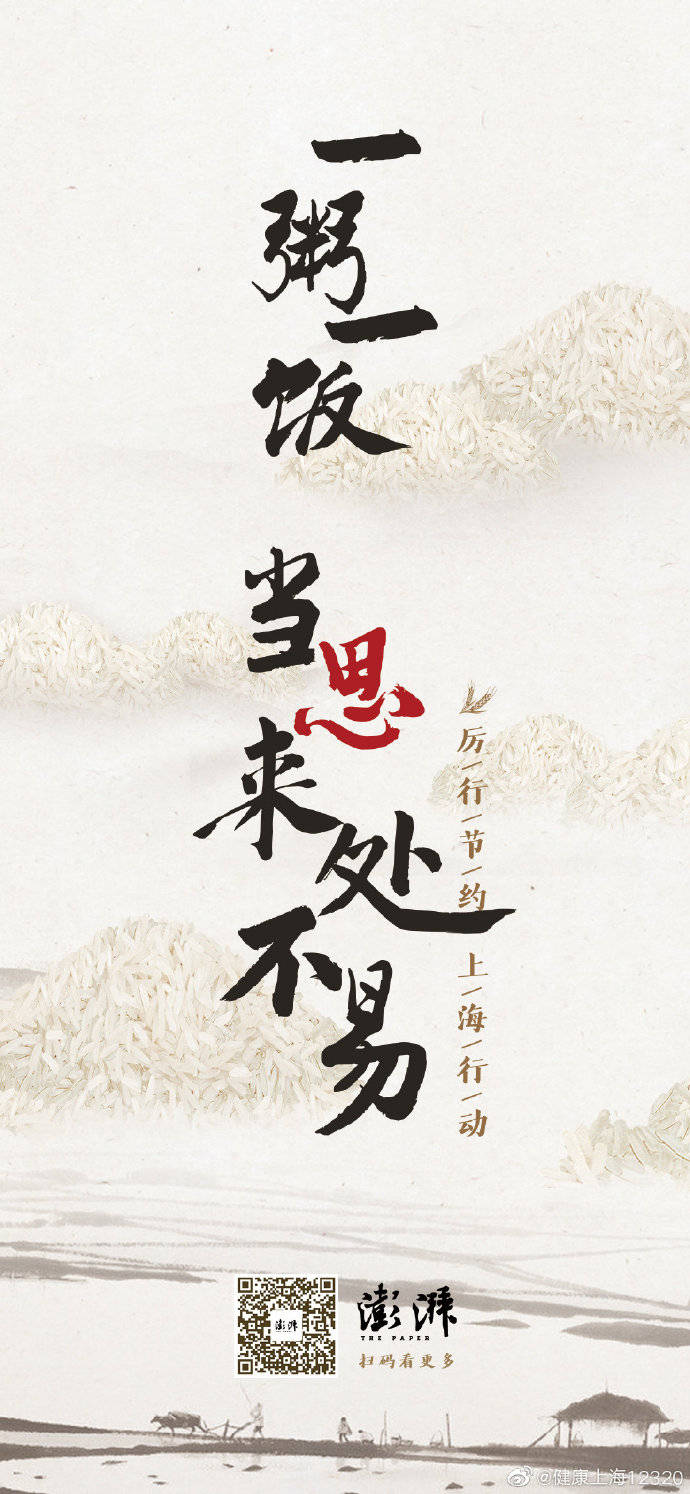 一粥一饭
当思来处不易
厉行节约 上海行动
澎湃
澎湃
THE PAPER
扫码看更多
@健康上海12320